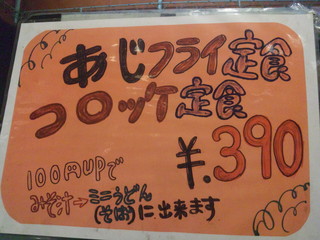 あじフライ定食
コロッケ定食
¥.390
100円UPで
みそ汁→ミニうどん
(そば)に出来ます